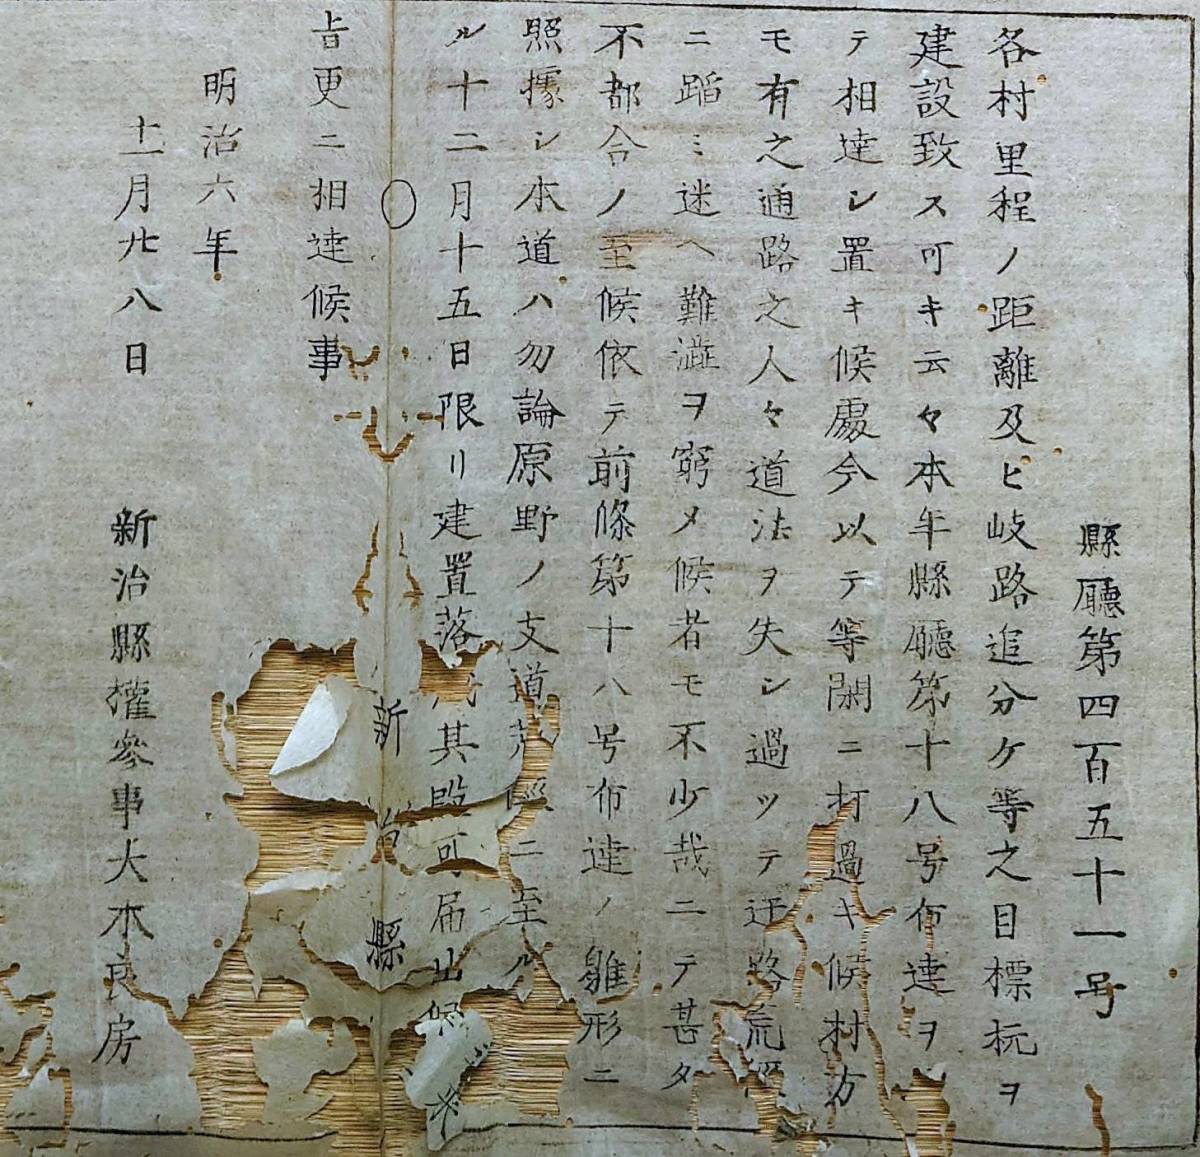 縣廳第四百五十一号
各村里程ノ距離及ヒ岐路追分ケ等之目標杭ヲ
建設致ス可キ云々本年縣廳第十八号布達ヲ
テ相達シ置キ候處今以テ等閑ニ打過キ候村方
モ有之通路之人々道法ヲ失シ過ツテ迂路荒
ニ蹈ミ迷ヘ難澁ヲ窮メ候者モ不少哉ニテ甚タ
不都合ノ至候依テ前條第十八号布達ノ雛形ニ
照據シ本道ハ勿論原野ノ支道ニ至ル
ル十二月十五日限リ建置落其段可届出候
㫖更ニ相達候事
新治縣
明治六年
十一月廿八日
新治縣權參事大木良房